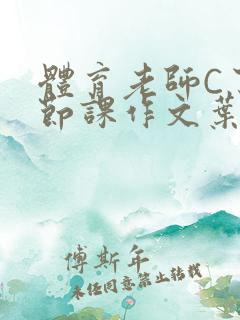 體育老師C了
節課作文葉
傅斯年
未經同意禁止轉載